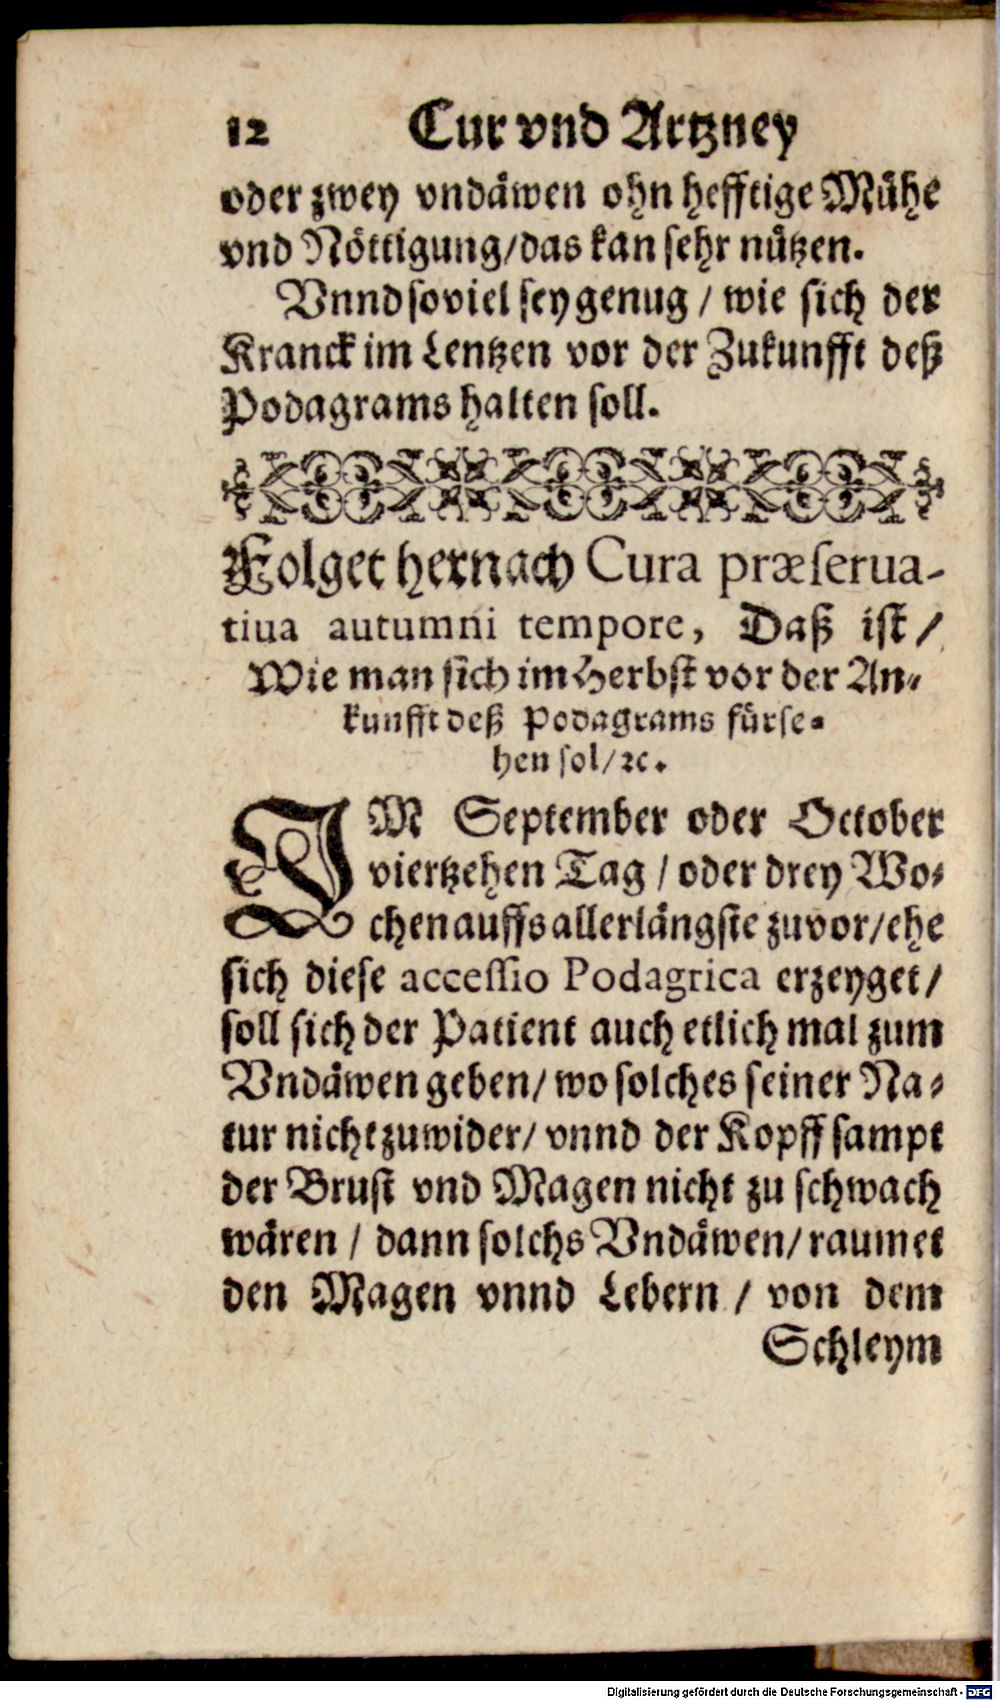 12 Cur vnd Artzney
oder zwey vndäwen ohn hefftige Mühe
vnd Nöttigung/das kan sehr nützen.
Vnnd soviel sey genug / wie sich der
Kranck im Lentzen vor der Zukunfft deß
Podagrams halten soll.
Folget hernach Cura præserua-
tiua autumni tempore, Daß ist /
Wie man sich im Herbst vor der An-
kunfft deß Podagrams fürse-
hen sol/ꝛc.
IM September oder October
viertzehen Tag / oder drey Wo-
chen auffs allerlängste zuvor/ehe
sich diese accessio Podagrica erzeyget/
soll sich der Patient auch etlich mal zum
Vndäwen geben/ wo solches seiner Na-
tur nicht zuwider/ vnnd der Kopff sampt
der Brust vnd Magen nicht zu schwach
wären / dann solchs Vndäwen/ raumet
den Magen vnnd Lebern / von dem
Schleym
Digitalisierung gefördert durch die Deutsche Forschungsgemeinschaft - DFG